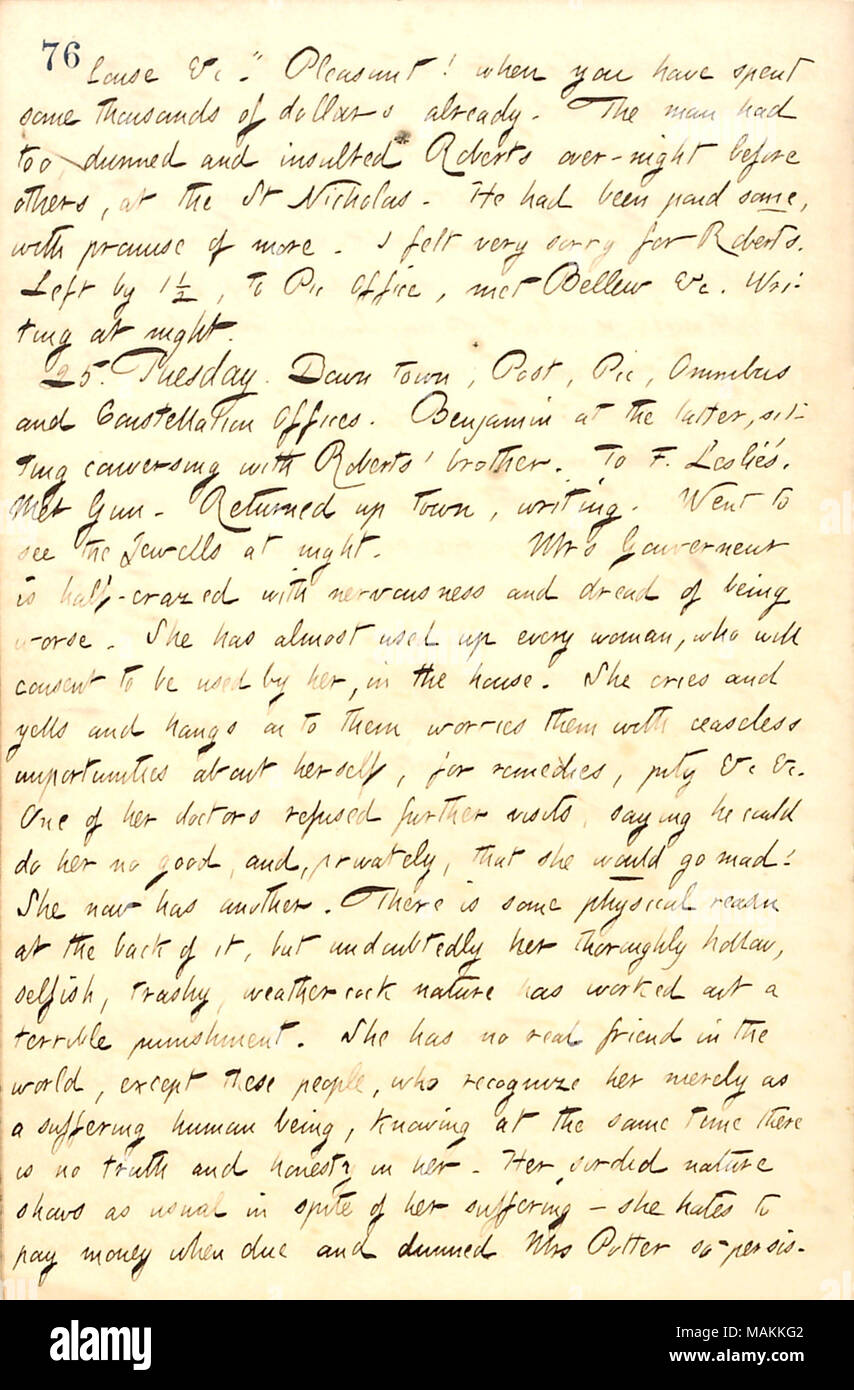 76
louse &c." Pleasant! when you have spent
some thousands of dollars already. The man had
too, dunned and insulted Roberts over-night before
others, at the St Nicholas. He had been paid some,
with promise of more. I felt very sorry for Roberts.
Left by 1 1/2, to Pic Office, met Bellew &c. Wri-
ting at night.
25. Tuesday. Down town, Post, Pic, Omnibus
and Constellation Offices. Benjamin at the latter, sit-
ting conversing with Roberts' brother. To F. Leslie's.
Met Gun. Returned up town, writing. Went to
see the Jewells at night. Mrs Gouverneur
is half-crazed with nervousness and dread of being
worse. She has almost used up every woman, who will
consent to be used by her, in the house. She cries and
yells and hangs on to them worries them with ceaseless
importunities about herself, for remedies, pity &c &c.
One of her doctors refused further visits, saying he could
do her no good, and, privately, that she would go mad!
She now has another. There is some physical reason
at the back of it, but undoubtedly her thoroughly hollow,
selfish, trashy, weathercock nature has worked out a
terrible punishment. She has no real friend in the
world, except these people, who recognize her merely as
a suffering human being, knowing at the same time there
is no truth and honesty in her. Her sordid nature
shows as usual in spite of her suffering — she hates to
pay money when due and dunned Mrs Potter so persis-
alamy
Image ID: MAKKG2
www.alamy.com